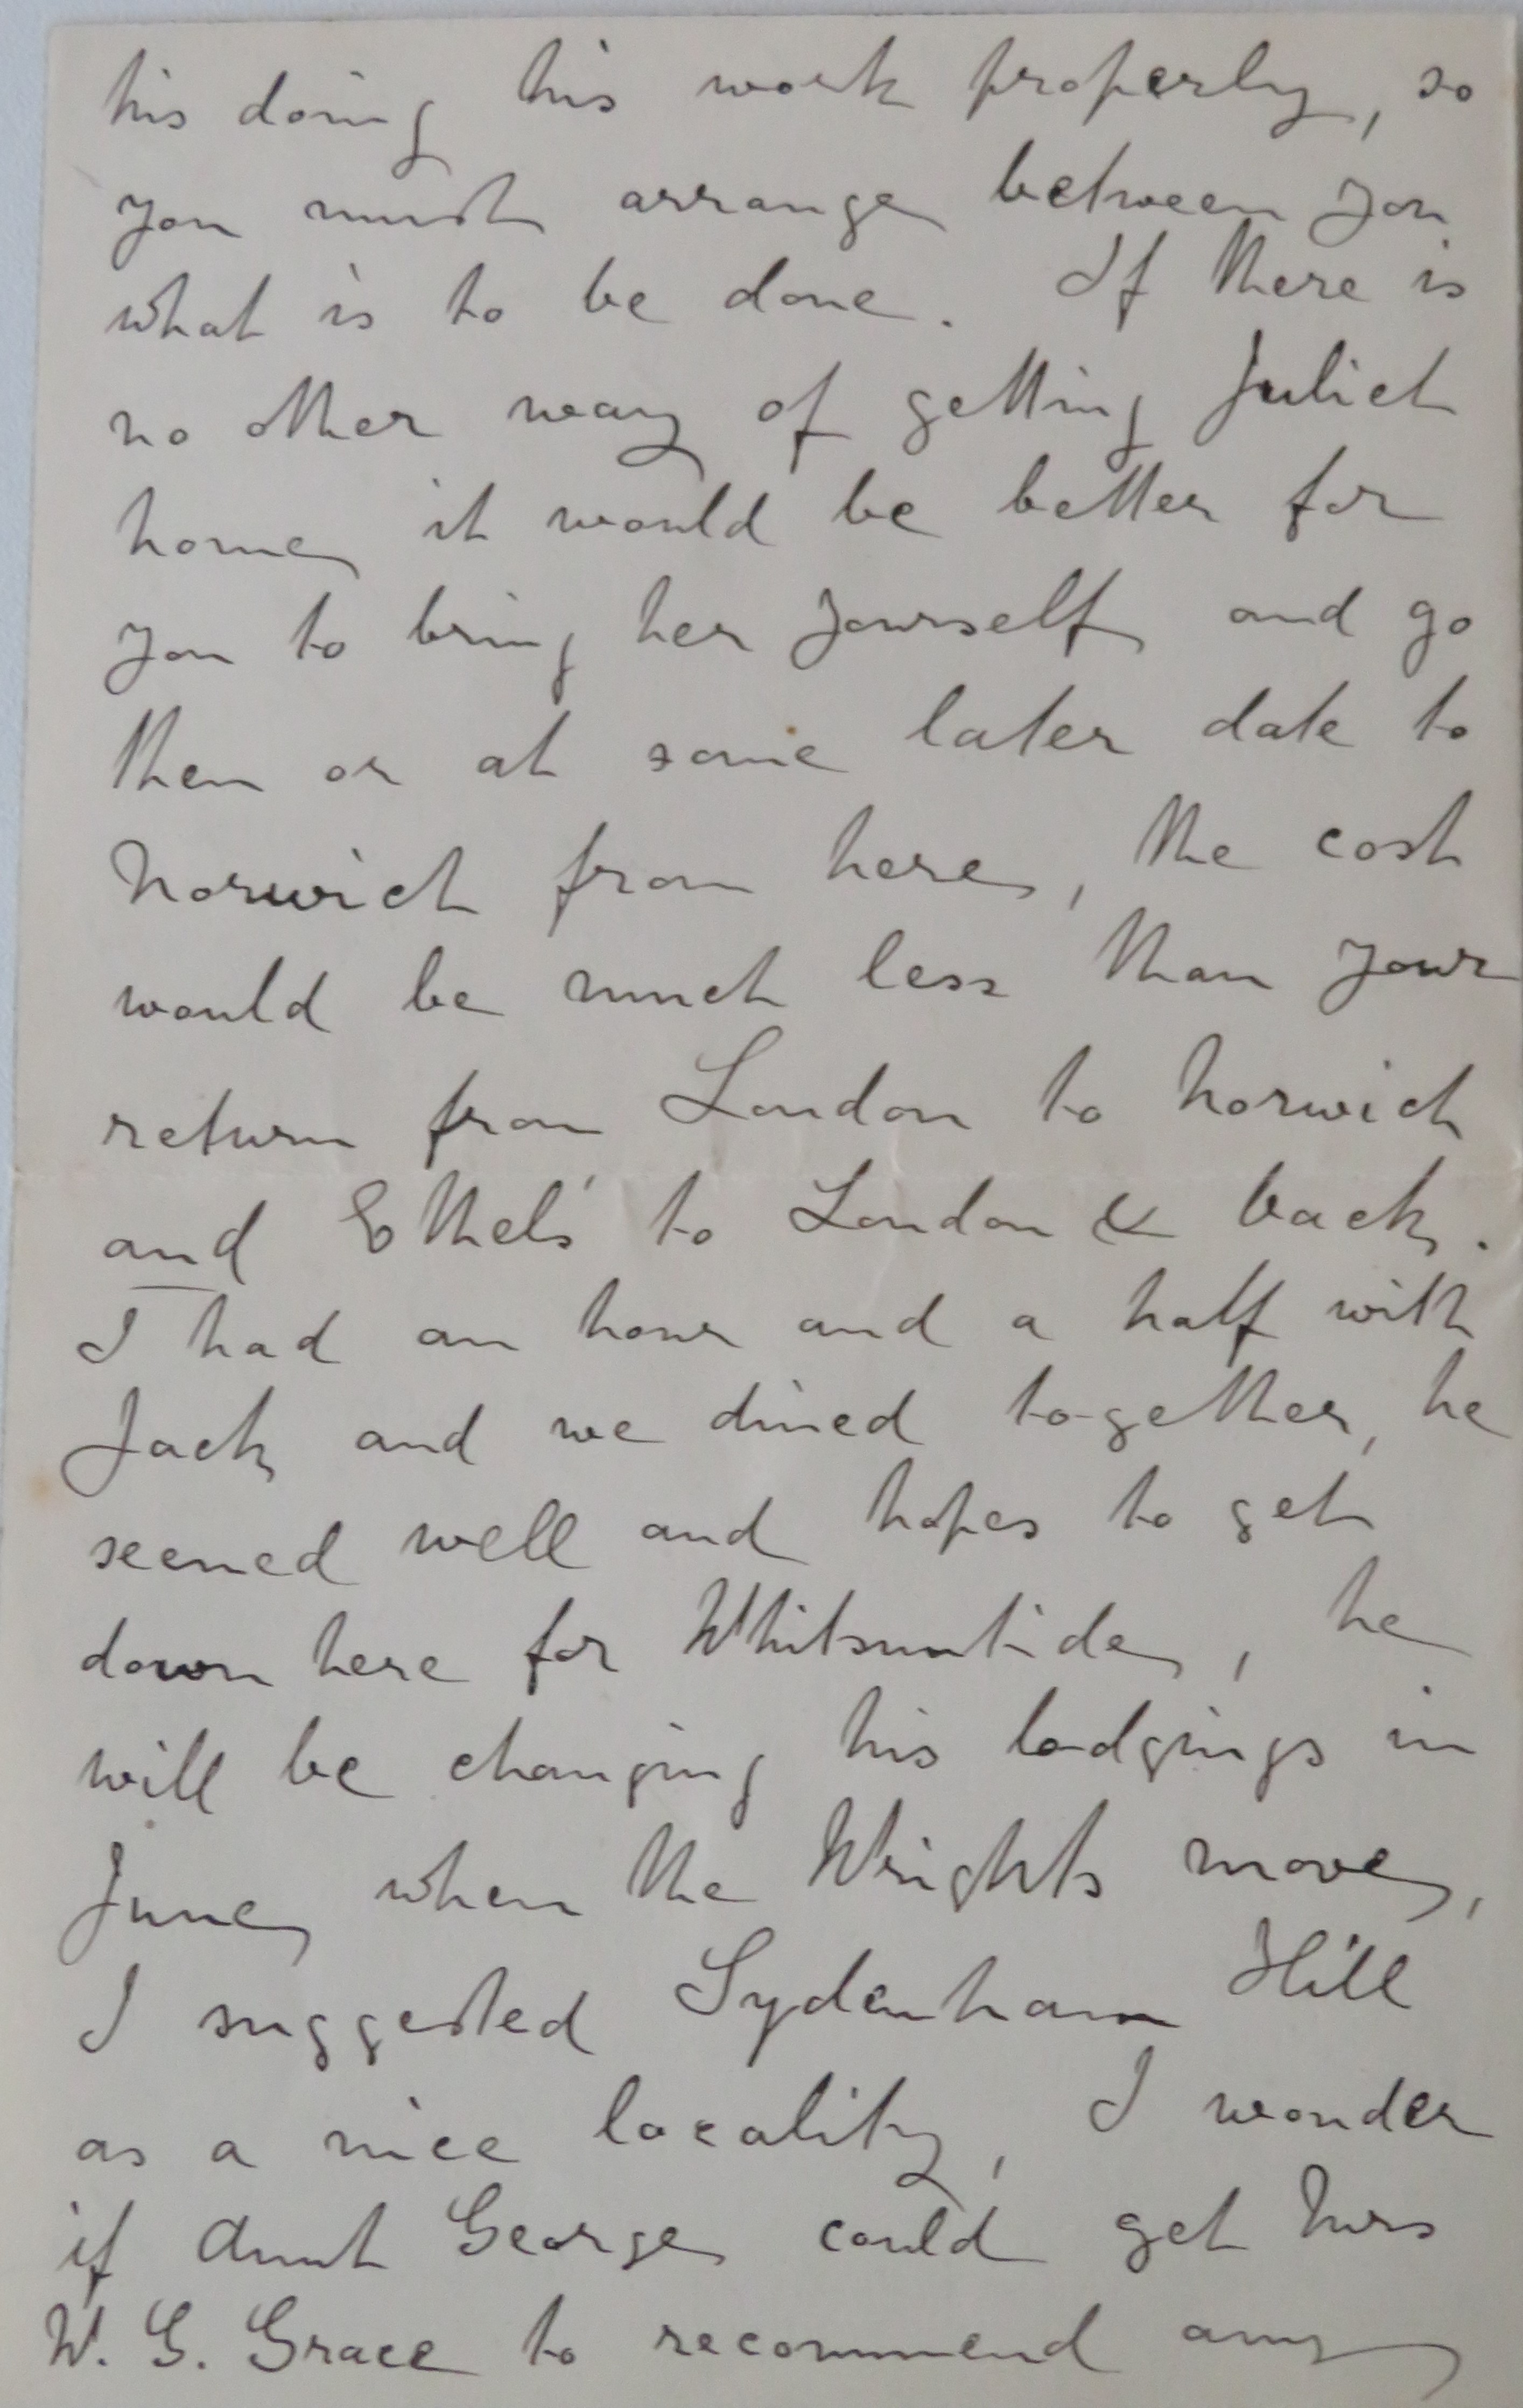 his doing his work properly, so
you must arrange between you
what is to be done. If there is
no other way of getting Juliet
home it would be better for
you to bring her yourself and go
then or at some later date to
Norwich from here, the cost
would be much less than your
return from London to Norwich
and Ethels' to London & back.
I had an hour and a half with
Jack and we dined together, he
seemed well and hopes to get
down here for Whitsuntide, he
will be changing his lodgings in
June when the Wrights move,
I suggested Sydenham Hill
as a nice locality, I wonder
if Aunt George could get Mrs
W. G. Grace to recommend any